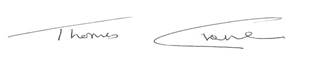 Thomas Crane